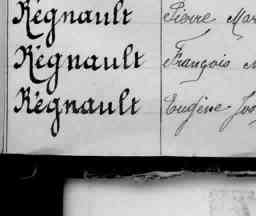 Régnault Pierre Mar
Régnault François M
Régnault Eugène Jos